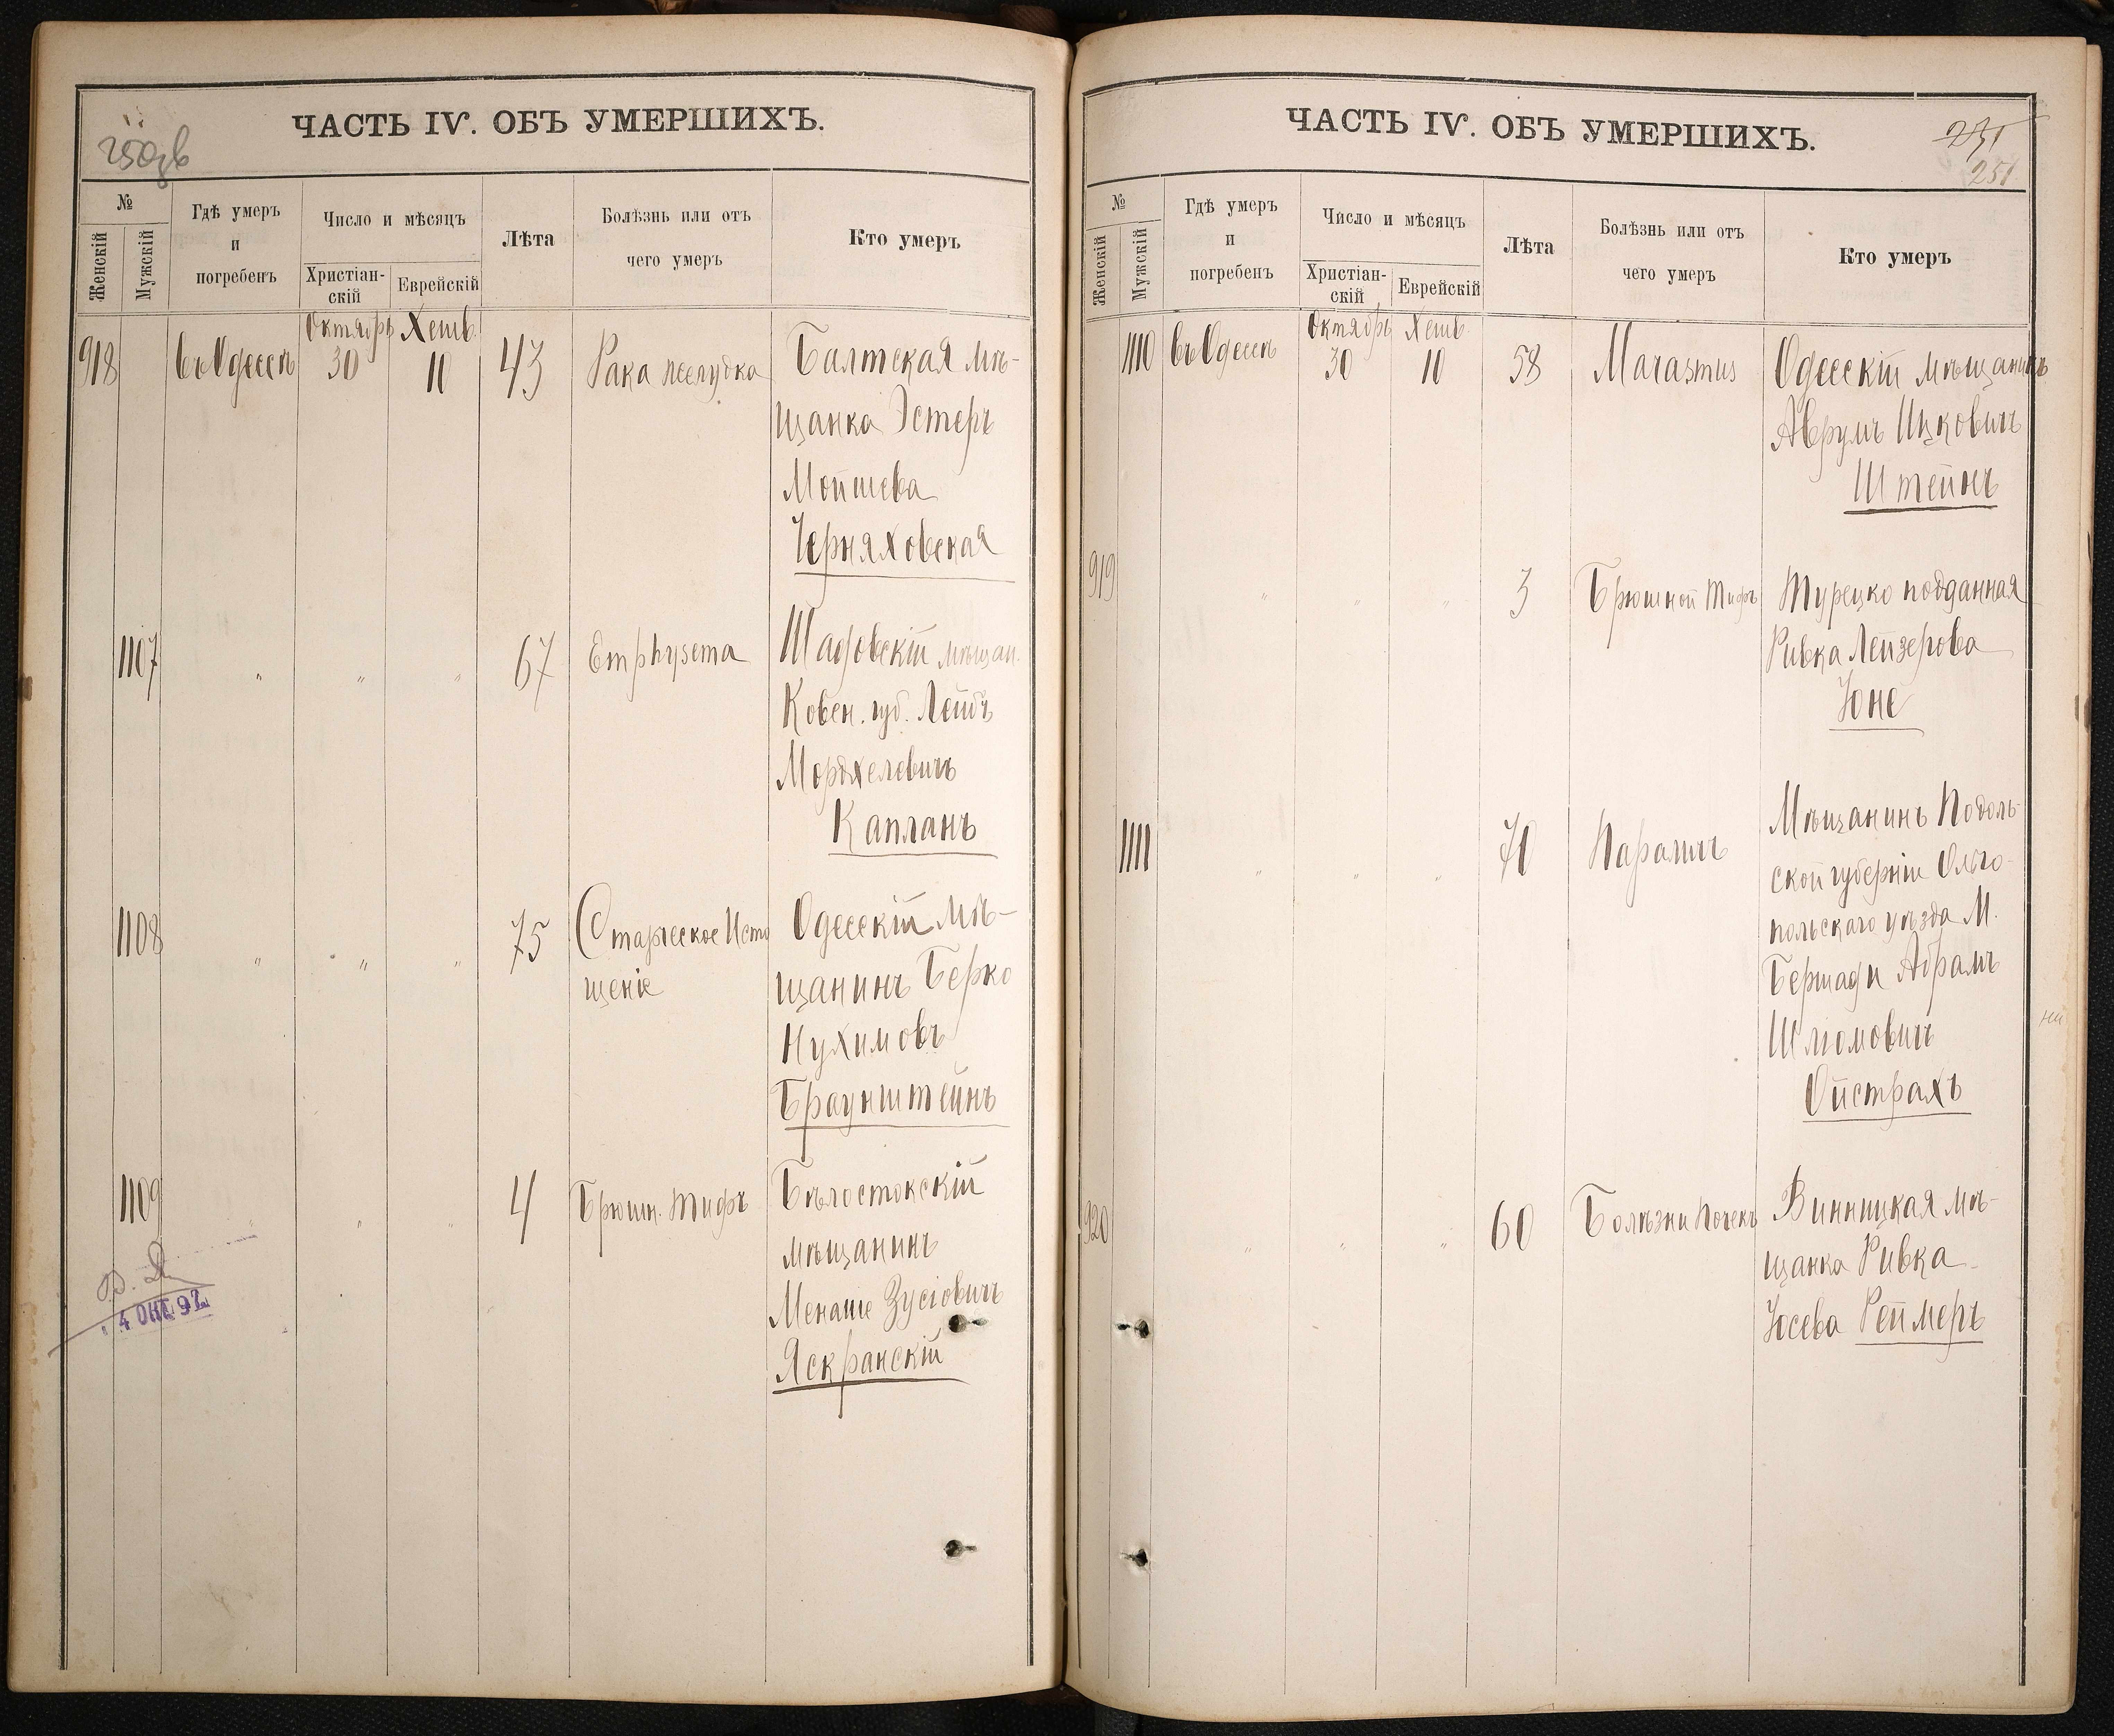 250об
ЧАСТЬ IV. ОБЪ УМЕРШИХЪ.
№
Женскій
Мужскій
Гдѣ умеръ
и
погребенъ
Число и мѣсяцъ
Христіан-
скій
Еврейскій
Лѣта
Болѣзнь или отъ
чего умеръ
Кто умеръ
Октябрь Хешв.
918 въ Одессѣ 30 10 43 Рака желудка Балтская мѣ-
щанка Эстеръ
Мойшева
Черняховская
1107 " " " 67 Emphysema Шадовскій мѣщан.
Ковен. губ. Лейбъ
Мордхелевичъ
Капланъ
1108 " " " 75 Старческое Исто Одесскій мѣ-
щеніе щанинъ Берко
Нухимовъ
Браунштейнъ
1109 " " " 4 Брюшн. Тифъ Бѣлостокскій
мѣщанинъ
Менаше Зусіовичъ
Яскранскій
4 ОКТ. 92
ЧАСТЬ IV. ОБЪ УМЕРШИХЪ.
251
251
№
Женскій
Мужскій
Гдѣ умеръ
и
погребенъ
Число и мѣсяцъ
Христіан-
скій
Еврейскій
Лѣта
Болѣзнь или отъ
чего умеръ
Кто умеръ
Октябрь Хешв.
1110 въ Одессѣ 30 10 58 Marasmus Одесскій мѣщанинъ
Аврумъ Ицковичъ
Штейнъ
919 " " " 3 Брюшной Тифъ Турецко подданная
Ривка Лейзерова
Іоне
1111 " " " 70 Параличъ Мѣщанинъ Подоль-
ской губерніи Ольго-
польскаго уѣзда М.
Бершади Абрамъ
Шліомовичъ
Ойстрахъ
920 " " " 60 Болѣзни Почекъ Винницкая мѣ-
щанка Ривка
Іосева Реймеръ